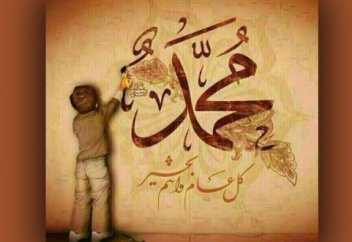 محمد
كل عام وانتم بخير